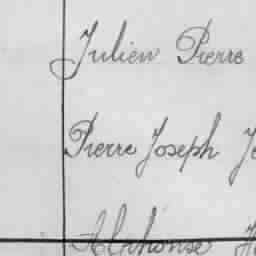 Julien Pierre
Pierre Joseph
Alphonse